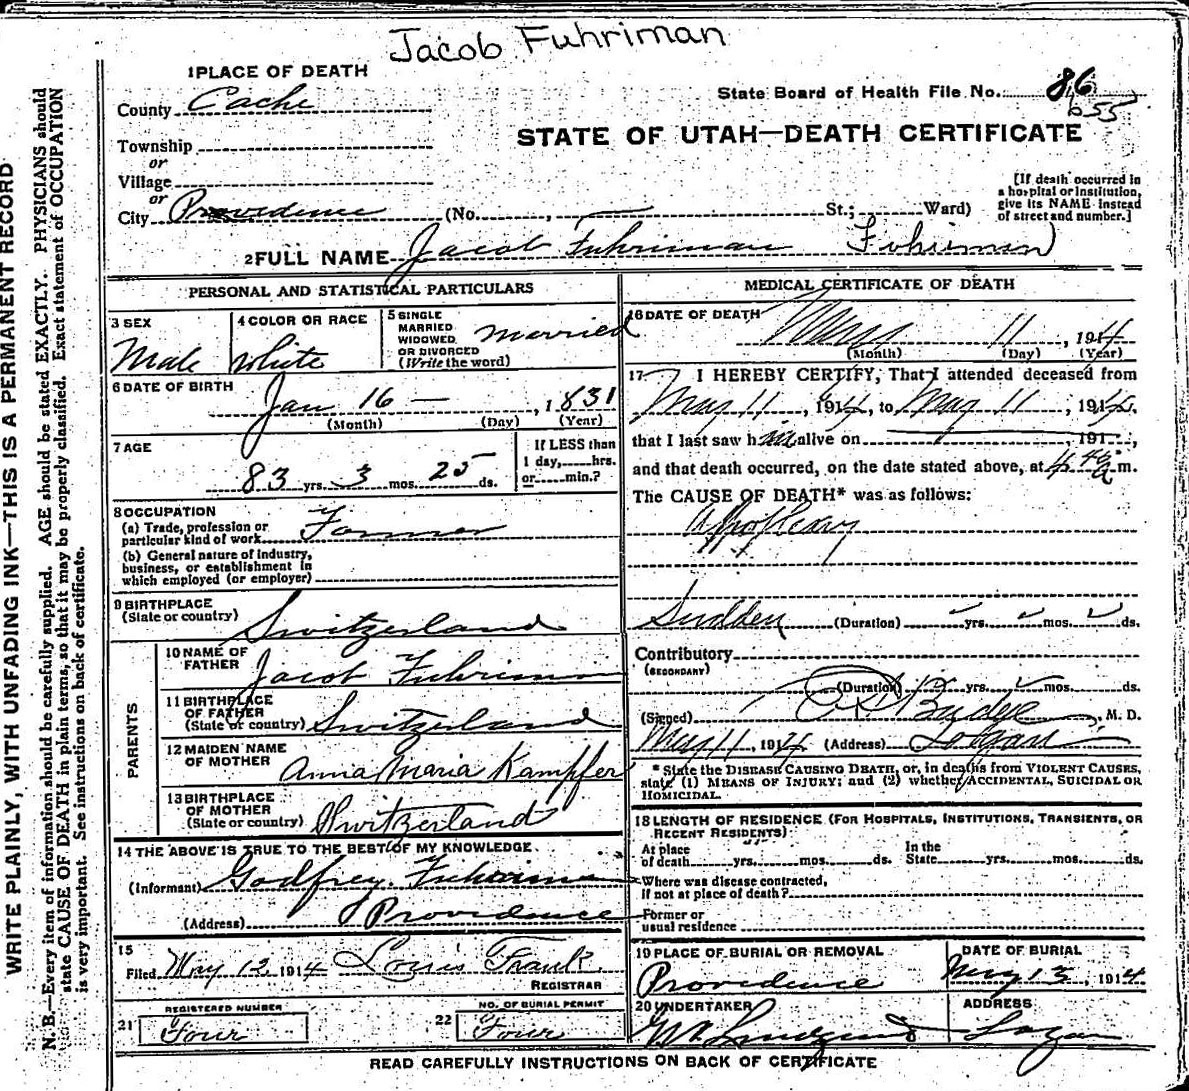 Jacob Fuhriman
1 PLACE OF DEATH
County Cache
State Board of Health File No. 86
655
STATE OF UTAH—DEATH CERTIFICATE
Township
or
Village
or
City Providence (No. , St.; Ward)
[If death occurred in
a hospital or institution,
give its NAME instead
of street and number.]
2 FULL NAME Jacob Fuhriman Fuhriman)
PERSONAL AND STATISTICAL PARTICULARS
3 SEX
Male
4 COLOR OR RACE
White
5 SINGLE
MARRIED
WIDOWED
OR DIVORCED
(Write the word)
Married
6 DATE OF BIRTH
Jan 16 — , 1831
(Month) (Day) (Year)
7 AGE
83 yrs. 3 mos. 25 ds.
If LESS than
1 day, hrs.
or min.?
8 OCCUPATION
(a) Trade, profession or
particular kind of work Farmer
(b) General nature of industry,
business, or establishment in
which employed (or employer)
9 BIRTHPLACE
(State or country) Switzerland
PARENTS
10 NAME OF
FATHER Jacob Fuhriman
11 BIRTHPLACE
OF FATHER
(State or country) Switzerland
12 MAIDEN NAME
OF MOTHER Anna Maria Kampfer
13 BIRTHPLACE
OF MOTHER
(State or country) Switzerland
14 THE ABOVE IS TRUE TO THE BEST OF MY KNOWLEDGE.
(Informant) Godfrey Fuhriman
(Address) Providence
15
Filed May 12, 1914 Louis Frank.
REGISTRAR
21 REGISTERED NUMBER
Four
22 NO. OF BURIAL PERMIT
Four
MEDICAL CERTIFICATE OF DEATH
16 DATE OF DEATH
May 11, 1914
(Month) (Day) (Year)
17 I HEREBY CERTIFY, That I attended deceased from
May 11, 1914, to May 11, 1914,
that I last saw him alive on , 191 ,
and that death occurred, on the date stated above, at m.
The CAUSE OF DEATH* was as follows:
Apoplexy
Sudden (Duration) yrs. mos. ds.
Contributory
(SECONDARY)
(Duration) yrs. mos. ds.
(Signed) Budge, M. D.
May 11, 1914 (Address) Logan
* State the DISEASE CAUSING DEATH, or, in deaths from VIOLENT CAUSES,
state (1) MEANS OF INJURY; and (2) whether ACCIDENTAL, SUICIDAL OR
HOMICIDAL.
18 LENGTH OF RESIDENCE (FOR HOSPITALS, INSTITUTIONS, TRANSIENTS, OR
RECENT RESIDENTS)
At place
of death yrs. mos. ds.
In the
State yrs. mos. ds.
Where was disease contracted,
if not at place of death?
Former or
usual residence
19 PLACE OF BURIAL OR REMOVAL
Providence
DATE OF BURIAL
May 13, 1914
20 UNDERTAKER
ADDRESS
Logan
READ CAREFULLY INSTRUCTIONS ON BACK OF CERTIFICATE
WRITE PLAINLY, WITH UNFADING INK—THIS IS A PERMANENT RECORD
N. B.—Every item of information should be carefully supplied. AGE should be stated EXACTLY. PHYSICIANS should
state CAUSE OF DEATH in plain terms, so that it may be properly classified. Exact statement of OCCUPATION
is very important. See instructions on back of certificate.